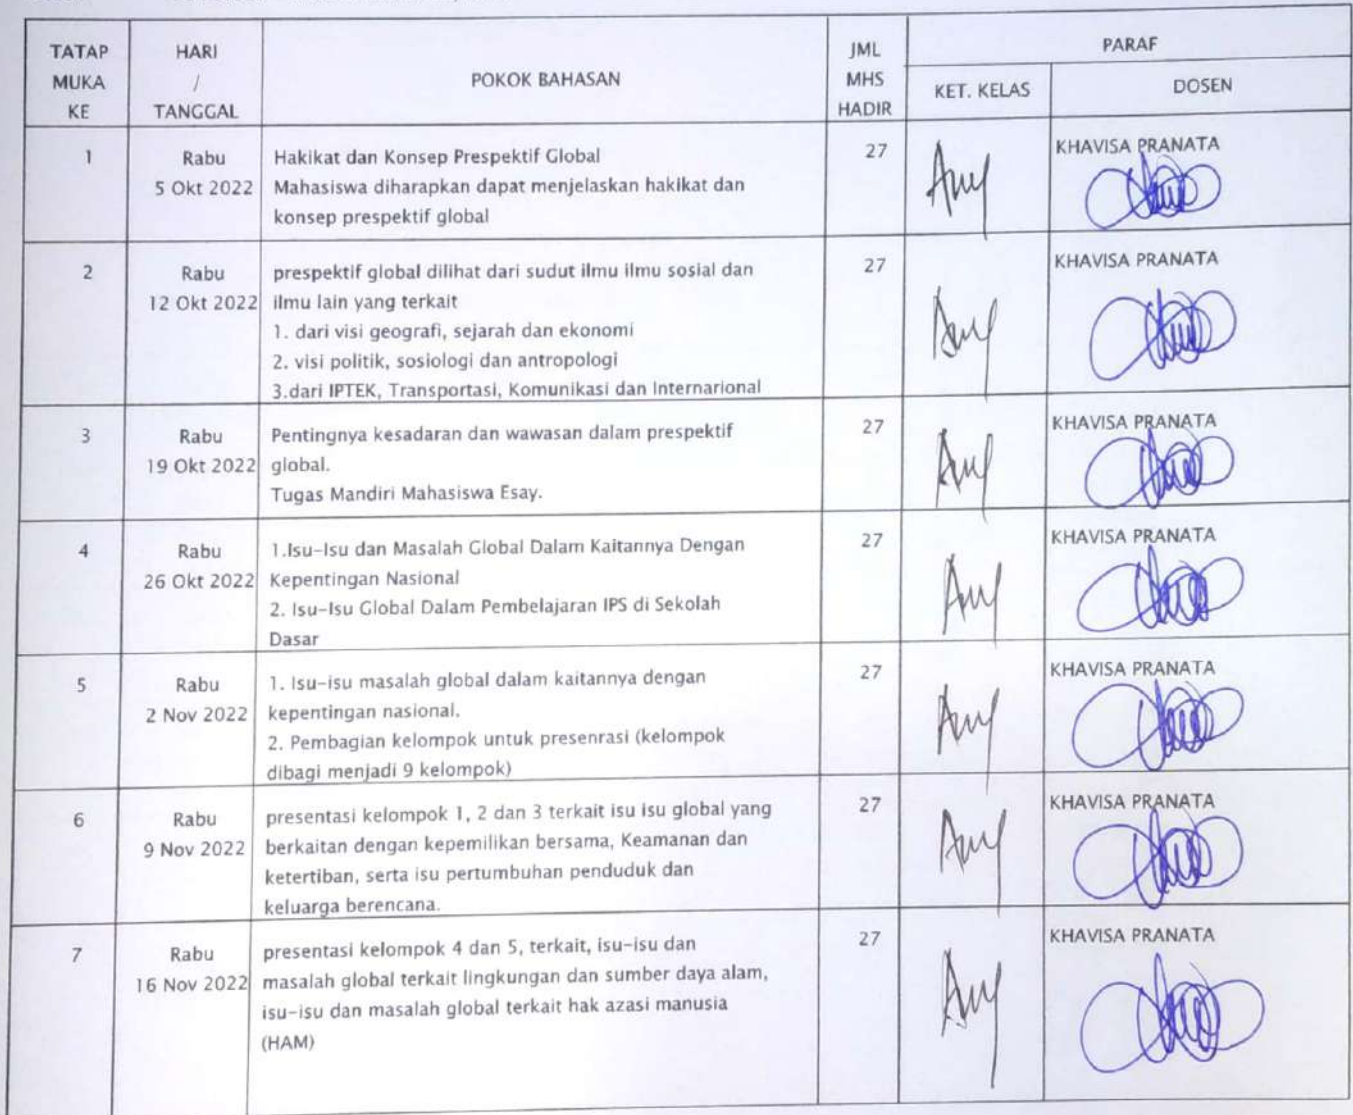 TATAP MUKA KE
HARI / TANGGAL
POKOK BAHASAN
JML MHS HADIR
PARAF
KET. KELAS
DOSEN
1
Rabu
5 Okt 2022
Hakikat dan Konsep Prespektif Global
Mahasiswa diharapkan dapat menjelaskan hakikat dan
konsep prespektif global
27
KHAVISA PRANATA
2
Rabu
12 Okt 2022
prespektif global dilihat dari sudut ilmu ilmu sosial dan
ilmu lain yang terkait
1. dari visi geografi, sejarah dan ekonomi
2. visi politik, sosiologi dan antropologi
3.dari IPTEK, Transportasi, Komunikasi dan Internarional
27
KHAVISA PRANATA
3
Rabu
19 Okt 2022
Pentingnya kesadaran dan wawasan dalam prespektif
global.
Tugas Mandiri Mahasiswa Esay.
27
KHAVISA PRANATA
4
Rabu
26 Okt 2022
1.Isu-Isu dan Masalah Global Dalam Kaitannya Dengan
Kepentingan Nasional
2. Isu-Isu Global Dalam Pembelajaran IPS di Sekolah
Dasar
27
KHAVISA PRANATA
5
Rabu
2 Nov 2022
1. Isu-isu masalah global dalam kaitannya dengan
kepentingan nasional.
2. Pembagian kelompok untuk presenrasi (kelompok
dibagi menjadi 9 kelompok)
27
KHAVISA PRANATA
6
Rabu
9 Nov 2022
presentasi kelompok 1, 2 dan 3 terkait isu isu global yang
berkaitan dengan kepemilikan bersama, Keamanan dan
ketertiban, serta isu pertumbuhan penduduk dan
keluarga berencana.
27
KHAVISA PRANATA
7
Rabu
16 Nov 2022
presentasi kelompok 4 dan 5, terkait, isu-isu dan
masalah global terkait lingkungan dan sumber daya alam,
isu-isu dan masalah global terkait hak azasi manusia
(HAM)
27
KHAVISA PRANATA